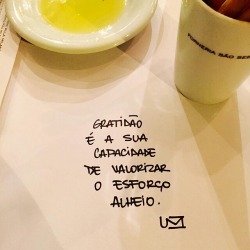 FORNERIA SÃO
GRATIDÃO
É A SUA
CAPACIDADE
DE VALORIZAR
O ESFORÇO
ALHEIO.